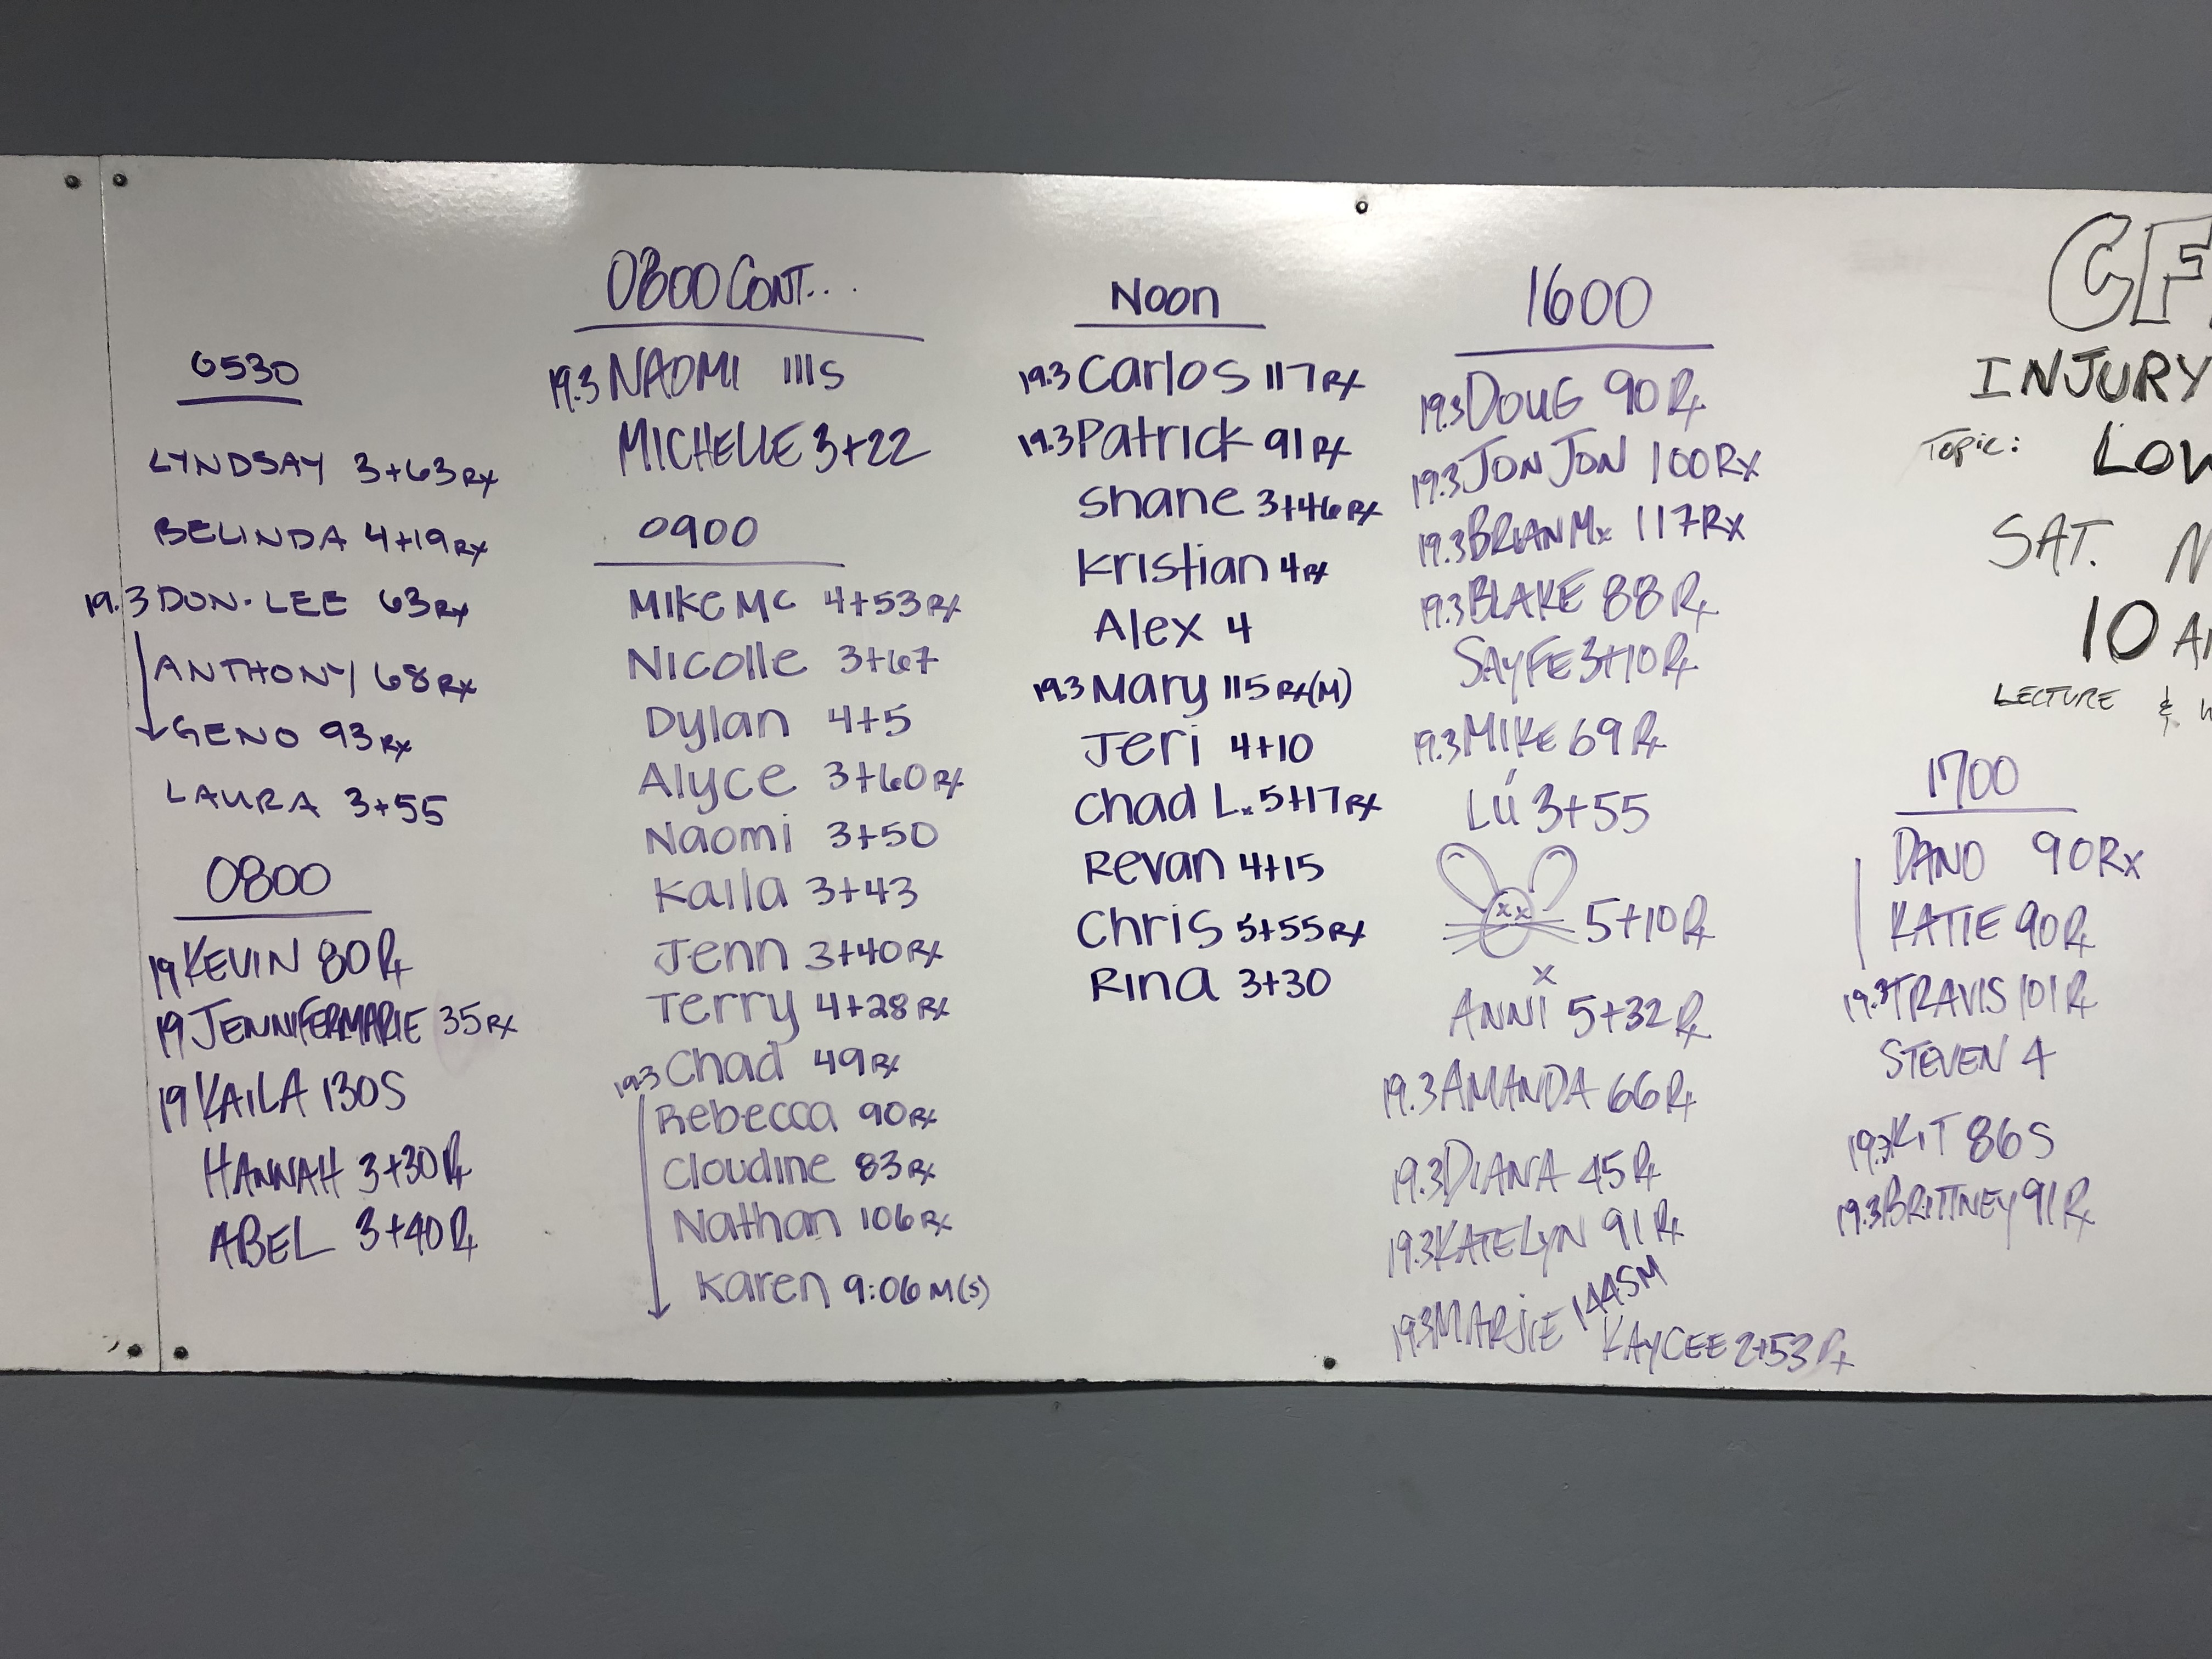 0530
LYNDSAY 3+63 Rx
BELINDA 4+19 Rx
19.3 DON-LEE 63 Rx
ANTHONY 68 Rx
GENO 93 Rx
LAURA 3+55
0800
19 KEVIN 80 Rx
19 JENNIFERMARIE 35 Rx
19 KAILA 130S
HANNAH 3+30 Rx
ABEL 3+40 Rx
0800 CONT...
19.3 NAOMI 111S
MICHELLE 3+22
0900
MIKE MC 4+53 Rx
Nicolle 3+67
Dylan 4+5
Alyce 3+60 Rx
Naomi 3+50
Kaila 3+43
Jenn 3+40 Rx
Terry 4+28 Rx
19.3 Chad 49 Rx
Rebecca 90 Rx
Cloudine 83 Rx
Nathan 106 Rx
Karen 9:06 M(S)
Noon
19.3 Carlos 117 Rx
19.3 Patrick 91 Rx
Shane 3+46 Rx
Kristian 4 Rx
Alex 4
19.3 Mary 115 Rx(M)
Jeri 4+10
Chad L. 5+17 Rx
Revan 4+15
Chris 5+55 Rx
Rina 3+30
1600
19.3 DOUG 90 Rx
19.3 JON JON 100 Rx
19.3 BRIAN Mx 117 Rx
19.3 BLAKE 88 Rx
SAYFE 3+10 Rx
19.3 MIKE 69 Rx
LÚ 3+55
xx 5+10 Rx
x
ANNI 5+32 Rx
19.3 AMANDA 66 Rx
19.3 DIANA 45 Rx
19.3 KATELYN 91 Rx
19.3 MARJIE 144SM
KAYCEE 2+53 Rx
CF
INJURY
Topic: LOW
SAT.
10 A
LECTURE &
1700
DANO 90 Rx
KATIE 90 Rx
19.3 TRAVIS 101 Rx
STEVEN 4
19.3 KIT 86 S
19.3 BRITTNEY 91 Rx